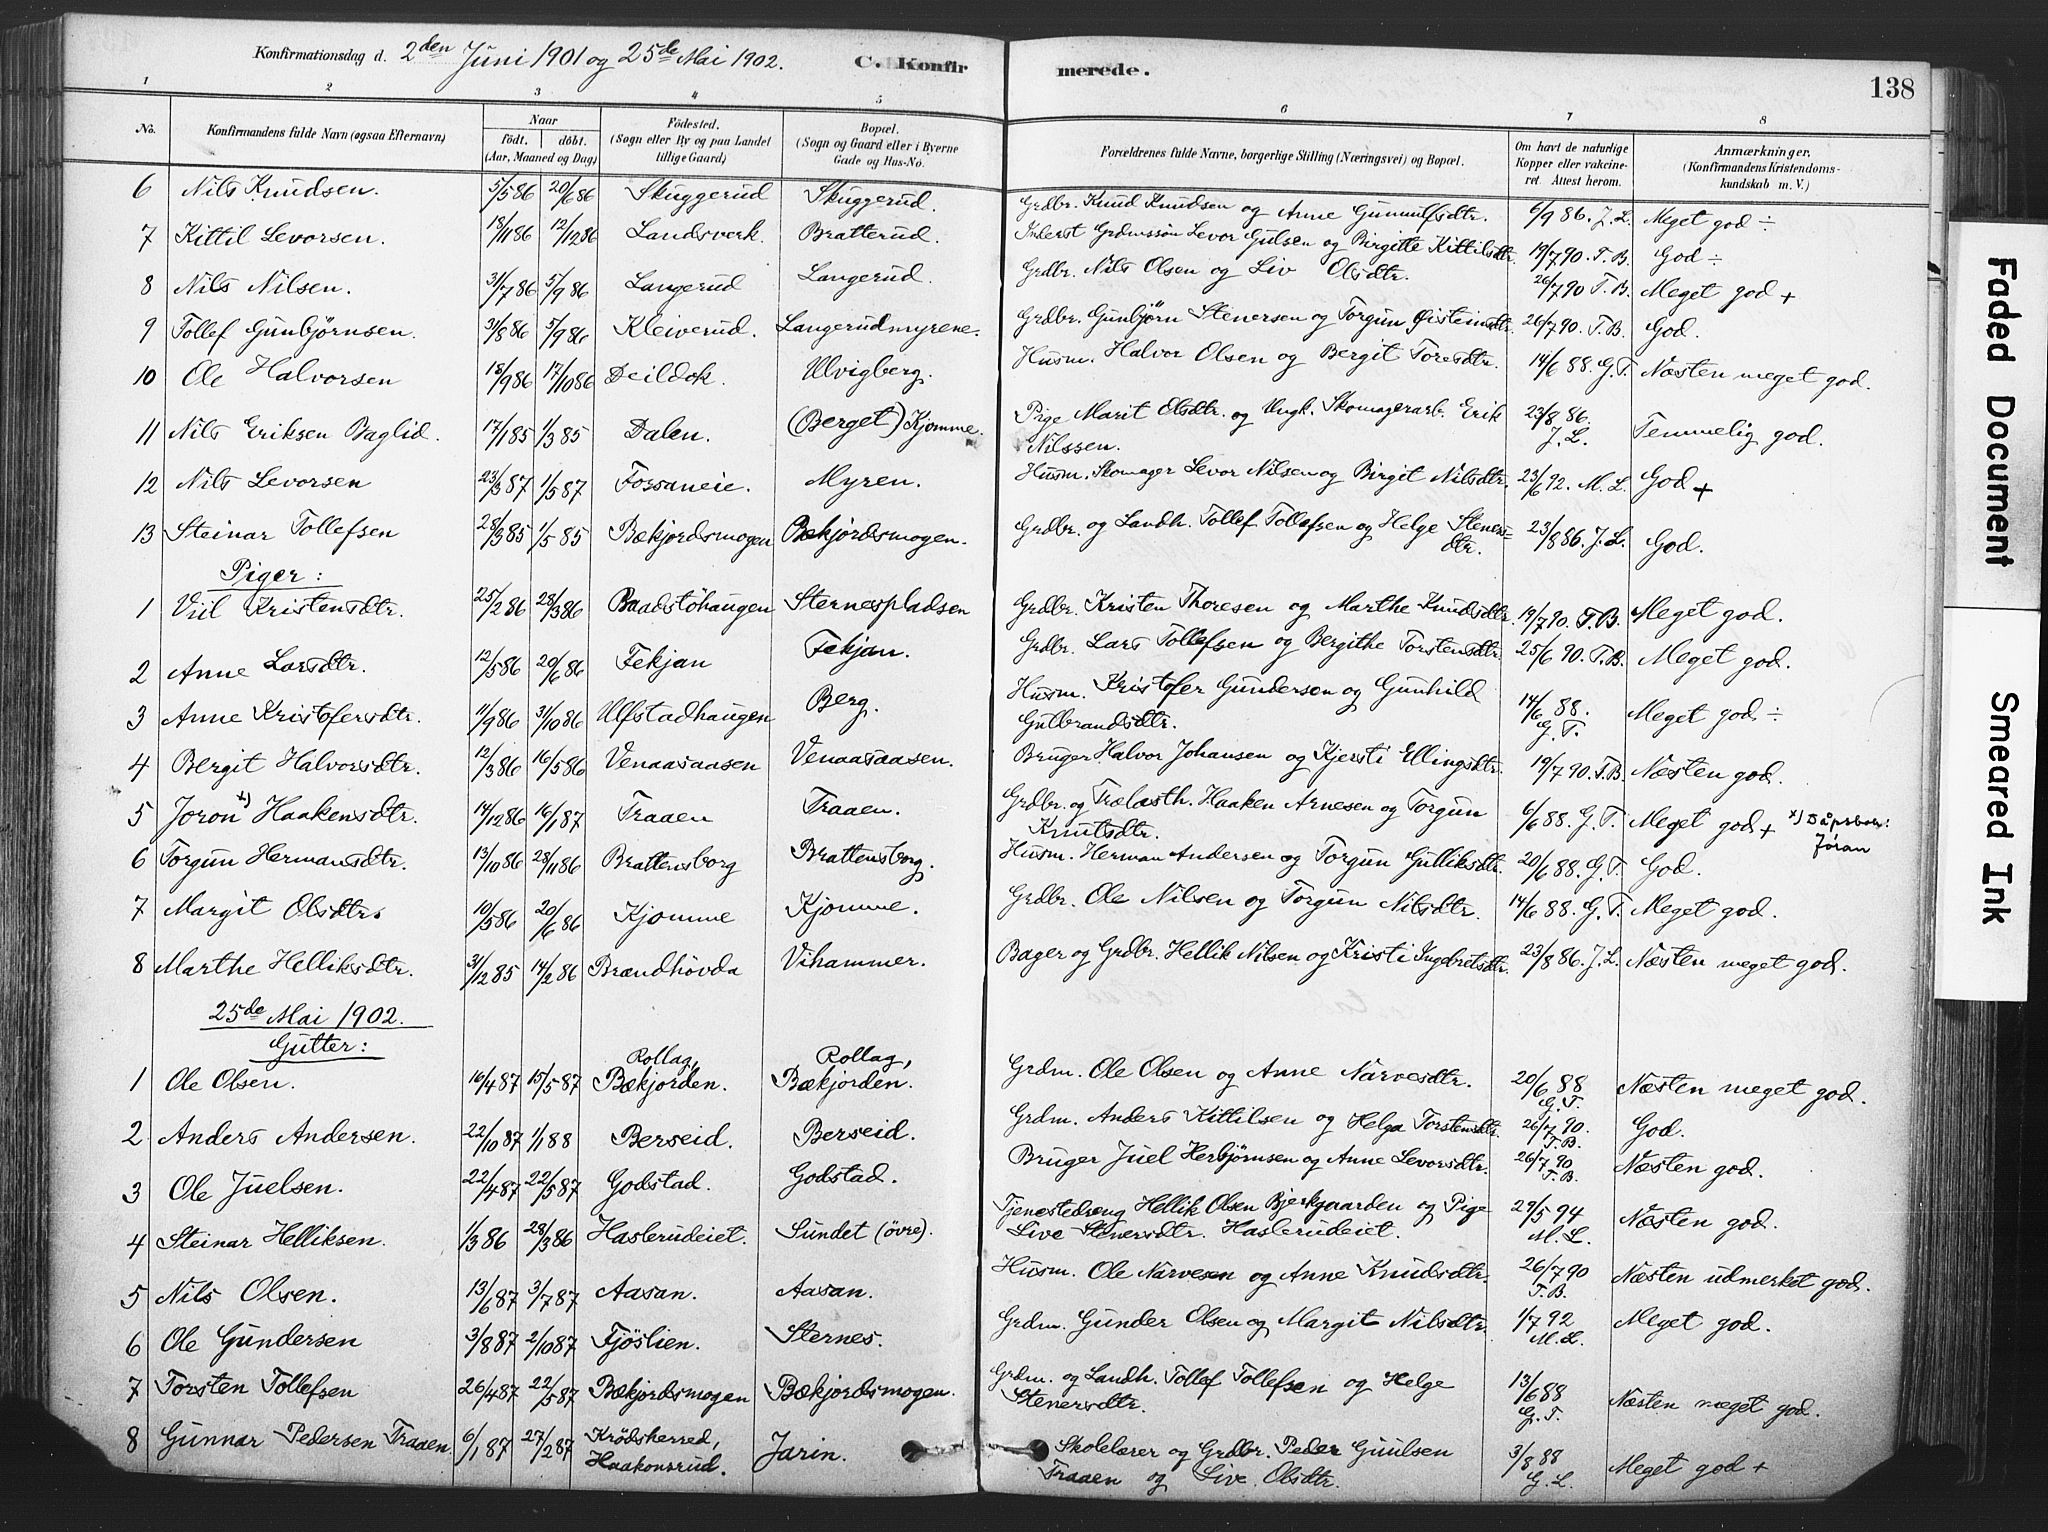 Konfirmationsdag d. 2den Juni 1901 og 25de Mai 1902. C. Konfirmerede. 138
1 2 3 4 5 6 7 8
No. Konfirmandens fulde Navn (ogsaa Efternavn) Naar født. døbt. (Aar, Maaned og Dag) Fødested. (Sogn eller By og paa Landet tillige Gaard) Bopæl. (Sogn og Gaard eller i Byerne Gade og Hus-No. Forældrenes fulde Navne, borgerlige Stilling (Næringsvei) og Bopæl. Om havt de naturlige Kopper eller vakcineret. Attest herom. Anmærkninger. (Konfirmandens Kristendomskundskab m. V.)
6 Nils Knudsen. 5/5 86 20/6 86 Skuggerud Skuggerud. Grdbr. Knud Knudsen og Anne Gunnulfsdtr. 6/9 86. J. L. Meget god ÷
7 Kittil Levorsen. 18/11 86 12/12 86 Landsverk. Bratterud. Inderst Grdmssøn Levor Gulsen og Birgitte Kittilsdtr. 19/7 90. T. B. God ÷
8 Nils Nilsen. 31/7 86 5/9 86 Langerud Langerud. Grdbr. Nils Olsen og Liv Olsdtr. 26/7 90 T. B. Meget god +
9 Tollef Gunbjørnsen. 3/8 86 5/9 86 Kleiverud. Langerudmyrene. Grdbr. Gunbjørn Stenersen og Torgun Øisteinsdtr. 26/7 90. T. B. God.
10 Ole Halvorsen 18/9 86 17/10 86 Deildok. Ulvigberg. Husm. Halvor Olsen og Bergit Toresdtr. 14/6 88. G. T. Næsten meget god.
11 Nils Eriksen Baglid. 17/1 85 1/3 85 Dalen. (Berget) Kjomme. Pige Marit Olsdtr. og Ungk. Skomagerarb. Erik Nilssen. 23/8 86. J. L. Temmelig god.
12 Nils Levorsen 23/3 87 1/5 87 Fossaneie. Myren. Husm. Skomager Levor Nilsen og Birgit Nilsdtr. 23/6 92. M. L. God +
13 Steinar Tollefsen 28/3 85 1/5 85 Bækjordsmogen Bækjordsmogen. Grdbr. og Landh. Tollef Tollefsen og Helge Steners=dtr. 23/8 86. J. L. God.
Piger:
1 Viil Kristensdtr. 25/2 86 28/3 86 Baadstöhaugen Sternespladsen Grdbr. Kristen Thoresen og Marthe Knudsdtr. 19/7 90. T. B. Meget god.
2 Anne Larsdtr. 12/5 86 20/6 86 Fekjan Fekjan. Grdbr. Lars Tollefsen og Bergithe Torstensdtr. 25/6 90. T. B. Meget god.
3 Anne Kristofersdtr. 11/9 86 31/10 86 Ulfstadhaugen Berg. Husm. Kristofer Gundersen og Gunhild Gulbrandsdtr. 14/6 88. G. T. Meget god ÷
4 Bergit Halvorsdtr. 12/3 86 16/5 86 Venaasaasen Venaasaasen. Bruger Halvor Johansen og Kjersti Ellingsdtr. 19/7 90. T. B Næsten god.
5 Joron x) Haakensdtr. 14/12 86 16/1 87 Traaen Traaen. Grdbr. og Trælasth. Haaken Arnesen og Torgun Knutsdtr. 6/6 88. G. T. Meget god + x) Dåpsbok: Jøran
6 Torgun Hermansdtr. 13/10 86 28/11 86 Brattensborg Brattensborg. Husm. Herman Andersen og Torgun Gulliksdtr. 20/6 88. G. T. God.
7 Margit Olsdtr. 10/5 86 20/6 86 Kjomme Kjomme. Grdbr. Ole Nilsen og Torgun Nilsdtr. 14/6 88. G. T. Meget god.
8 Marthe Helliksdtr. 31/12 85 14/2 86 Brændhövda Vihammer. Bager og Grdbr. Hellik Nilsen og Kristi Ingebretsdtr. 23/8 86. J. L. Næsten meget god.
25de Mai 1902.
Gutter:
1 Ole Olsen. 16/4 87 15/5 87 Rollag, Bækjorden. Rollag, Bækjorden. Grdm. Ole Olsen og Anne Narvesdtr. 20/6 88 G. T. Næsten meget god.
2 Anders Andersen. 22/10 87 1/1 88 Berseid. Berseid. Grdm. Anders Kittilsen og Helga Torstensdtr. 26/7 90. T. B. God.
3 Ole Juelsen. 22/4 87 22/5 87 Godstad. Godstad. Bruger Juel Herbjørnsen og Anne Levorsdtr. 26/7 90 T. B. Næsten god.
4 Steinar Helliksen. 1/3 86 28/3 86 Haslerudeiet. Sundet (övre). Tjenestedreng Hellik Olsen Bjerkgaarden og Pige Live Stenersdtr. Haslerudeiet. 29/5 94 M. L. Næsten god.
5 Nils Olsen. 13/6 87 3/7 87 Aasan. Aasan. Husm. Ole Narvesen og Anne Knudsdtr. 26/7 90 T. B. Næsten udmerket god.
6 Ole Gundersen 3/8 87 2/10 87 Fjöslien. Sternes. Grdm. Gunder Olsen og Margit Nilsdtr. 1/7 92 M. L. Meget god.
7 Torsten Tollefsen 26/4 87 22/5 87 Bækjordsmogen Bækjordsmogen. Grdm. og Landh. Tollef Tollefsen og Helge Stenersdtr. 13/6 88 G. T. Næsten meget god.
8 Gunnar Pedersen Traaen. 6/1 87 27/2 87 Krödsherred, Haakonsrud. Jarin. Skolelærer og Grdbr. Peder Guulsen Traaen og Live Olsdtr. 3/8 88 G. L. Meget god +
Faded Document
Smeared Ink